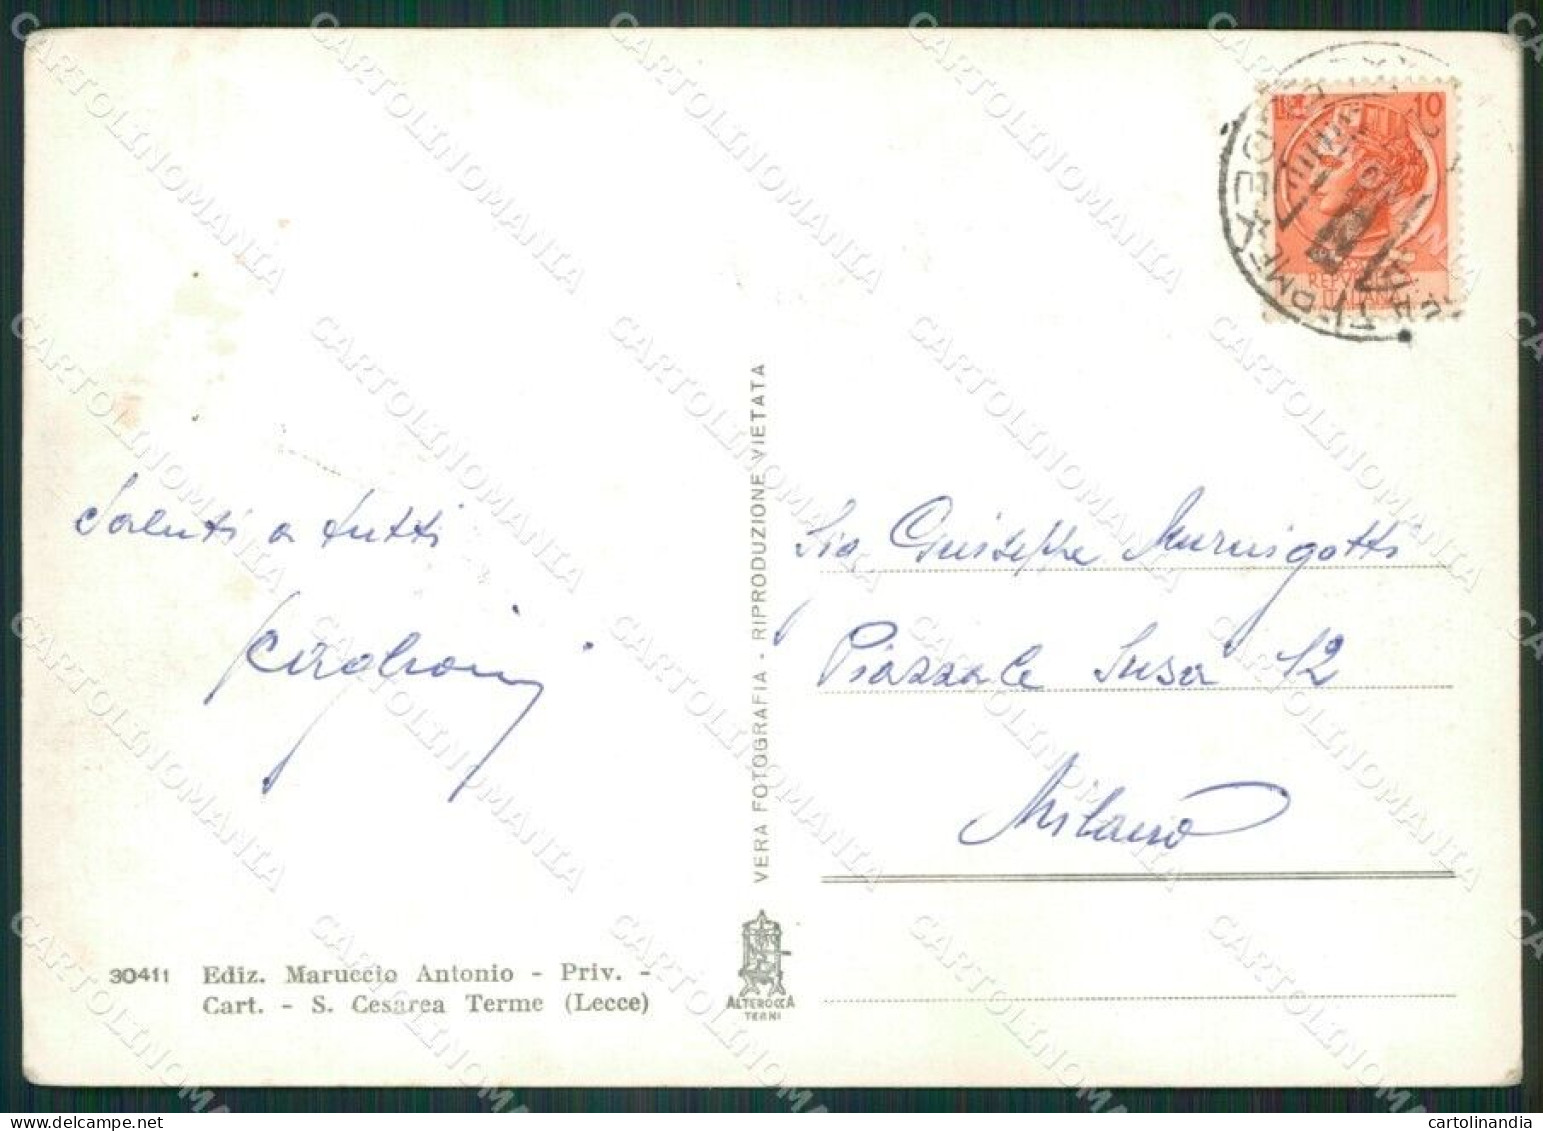 LIRE 10
REPVBBLICA
ITALIANA
Saluti a tutti
Sig Giuseppe Murnigotti
Piazzale Susa 12
Milano
VERA FOTOGRAFIA - RIPRODUZIONE VIETATA
30411 Ediz. Maruccio Antonio - Priv. -
Cart. - S. Cesarea Terme (Lecce)
ALTEROCCA
TERNI
CARTOLINOMANIA
cartolinandia